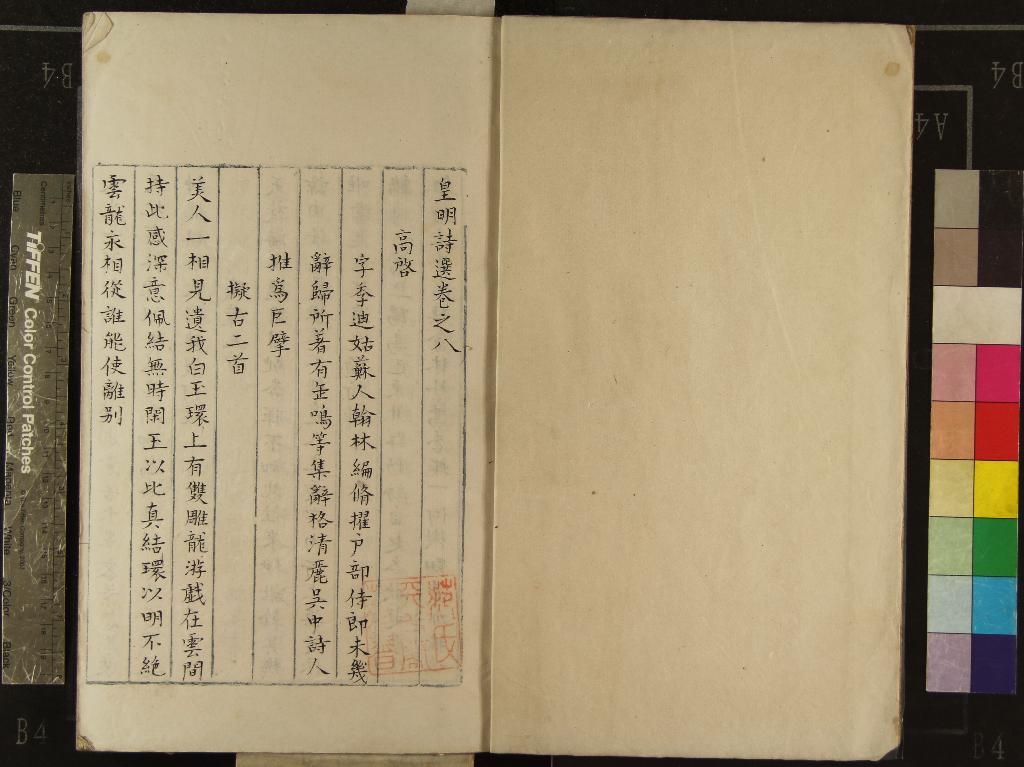 皇明詩選卷之八
高啓
字季迪姑蘇人翰林編脩擢户部侍郎未幾
辭歸所著有缶鳴等集辭格清麗吳中詩人
推為巨擘
擬古二首
美人一相見遺我白玉環上有雙雕龍游戲在雲間
持此感深意佩結無時閑玉以比真結環以明不絶
雲龍永相從誰能使離别
TIFFEN Color Control Patches
Blue
Cyan
Green
Yellow
Red
Magenta
White
3/Color
Black
Centimetres
B4
B4
A4
B4
B4